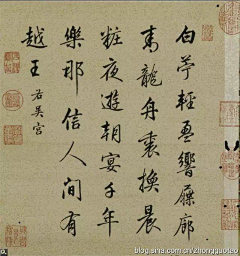 白苧輕盈響屧廊
青龍舟裏換晨
粧夜遊朝宴千年
樂那信人間有
越王 右吳宮
blog.sina.com.cn/zhongguotao